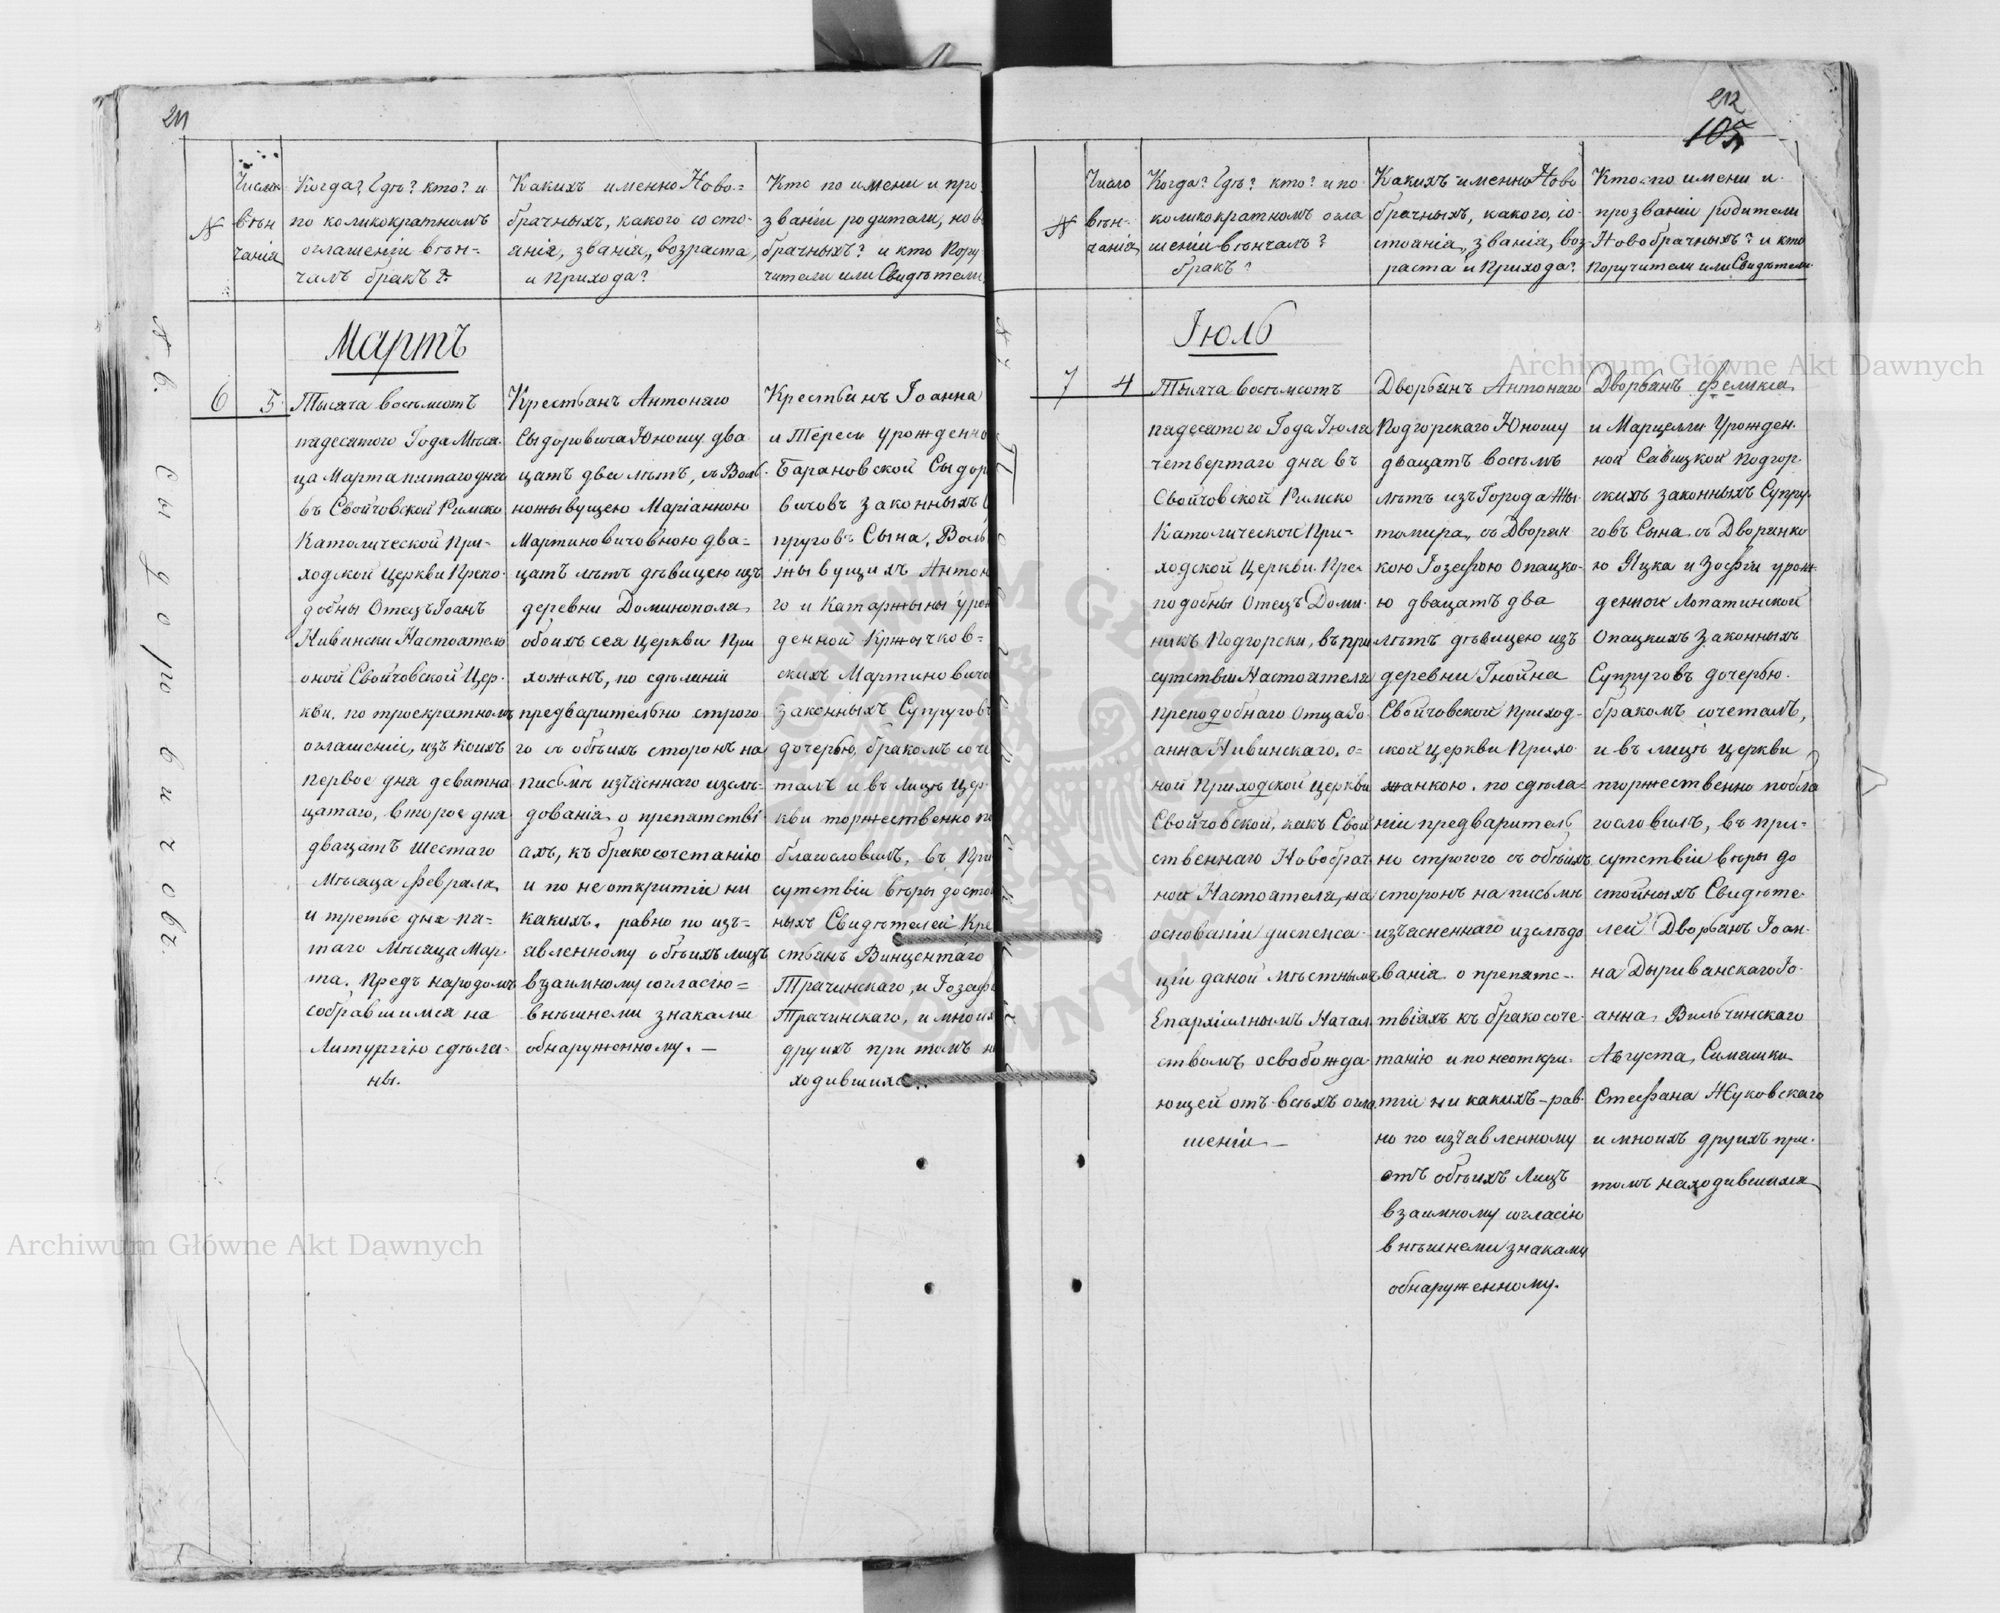 211
№
Число
вѣн
чанія
Когда? Гдѣ? кто? и
по коликократномъ
оглашеніи вѣн=
чалъ бракъ?
Какихъ именно Ново=
брачныхъ, какого состо-
янія, званія, возраста,
и Прихода?
Кто по имени и про
званіи родители, нов
брачныхъ? и кто Пору
чители или Свидѣтели
Мартъ
6
5
Тысяча восьмотъ
пядесятого Года Мѣся
ца Марта пятаго дня
въ Свойчовской Римско
Католической При-
ходской Церкви Препо-
добны Отецъ Іоанъ
Нивински Настоятель
оной Свойчовской Цер-
кви, по троекратномъ
оглашеніи, изъ коихъ
первое дня девятна
цатаго, второе дня
двацатъ шестаго
Мѣсяца февраля
и третьe дня пя=
таго Мѣсяца Мар
та. Предъ народомъ
собравшимся на
Литургію сдѣла-
ны.
Крестьянъ Антонаго
Сыдоровича Юношу два
цатъ два лѣтъ, съ Воль-
ножывущею Маріанною
Мартиновичовною два=
цатъ лѣтъ дѣвицею изъ
деревни Доминополя
обоихъ сея Церкви При
хожанъ, по сдѣланіи
предварительно строго
го съ обѣихъ сторонъ на
письмѣ изъясеннаго изслѣ-
дованія о препятстві-
ахъ, къ бракосочетанію
и по неоткритіи ни
какихъ. равно по изъ=
явленному обѣихъ лицъ
взаимному согласію=
внѣшнеми знаками
обнаруженному. —
Крестьянъ Іоанна
и Тереси урожденно
Барановской Сыдор
вичовъ законныхъ С
пруговъ Сына, Воль
жывущихъ Антон
го и Катаржыны урож
денной Кржычков=
скихъ Мартиновичо
законныхъ Супруговъ
дочерью, бракомъ соче
талъ и въ Лицѣ Цер
кви торжественно по
благословилъ, въ При
сутствіи вѣры досто
ныхъ Свидѣтелей Кре
стьянъ Винцентаго
Трачинскаго, и Іозефа
Трачинскаго, и многих
другихъ при томъ на
ходившихся.
N. 6.
Сыдоровичовъ.
212
105
№
Число
вѣн-
чанія
Когда? Гдѣ? кто? и по
коликократномъ огла
шеніи вѣнчалъ?
бракъ?
Какихъ именно Ново
брачныхъ, какого, со-
стоянія, званія, воз-
раста и Прихода?
Кто по имени и
прозваніи родители
Новобрачныхъ? и кто
Поручители или Свидѣтели
Іюль
7
4
Тысяча восьмсотъ
пядесятого Года Іюля
четвертаго дня въ
Свойчовской Римско
Католической При=
ходской Церкви Пре
подобны Отецъ Доми-
никъ Подгорски, въ при
сутствіи Настоятеля
Преподобнаго Отца Іо-
анна Нивинскаго, о=
ной Приходской Церкви
Свойчовской, какъ Свой
ственнаго Новобрач
ной Настоятеля, на
основаніи диспенса-
ціи даной мѣстнымъ
Епархіалнымъ Начал
ствомъ, освобожда-
ющей отъ всѣхъ огла
шеніи —
Дворянъ Антонаго
Подгорскаго Юношу
двацатъ восьмъ
лѣтъ изъ Города Жы-
томира, съ Дворян
кою Іозефою Опацко-
ю двацатъ два
лѣтъ дѣвицею изъ
деревни Гнойна
Свойчовской Приход-
ской Церкви Прихо
жанкою. по сдѣла-
ніи предваритель
но строгого съ обѣихъ
сторонъ на письмѣ
изъясненнаго изслѣдо
ванія о препятс-
твіяхъ къ бракосоче-
танію и по неоткри-
тіи ни какихъ-рав-
но по изъявленному
отъ обѣихъ Лицъ
взаимному согласію
внѣшнеми знаками
обнаруженному.
Дворянъ Феликса
и Марцелли Урожден-
ной Савицкой Подгор-
скихъ законныхъ Супру-
говъ Сына, съ Дворянко
ю Яцка и Зофіи урож-
денной Лопатинской
Опацкихъ законныхъ
Супруговъ дочерью.
бракомъ сочеталъ,
и въ лицѣ церкви
торжественно побла
гословилъ, въ при=
сутствіи вѣры до
стойныхъ Свидѣте-
лей Дворянъ Іоан-
на Дыриванскаго Іо-
анна Вильчинскаго
Августа, Симашки
Стефана Жуковскаго
и многихъ другихъ при-
томъ находившихся
Archiwum Główne Akt Dawnych
Archiwum Główne Akt Dawnych